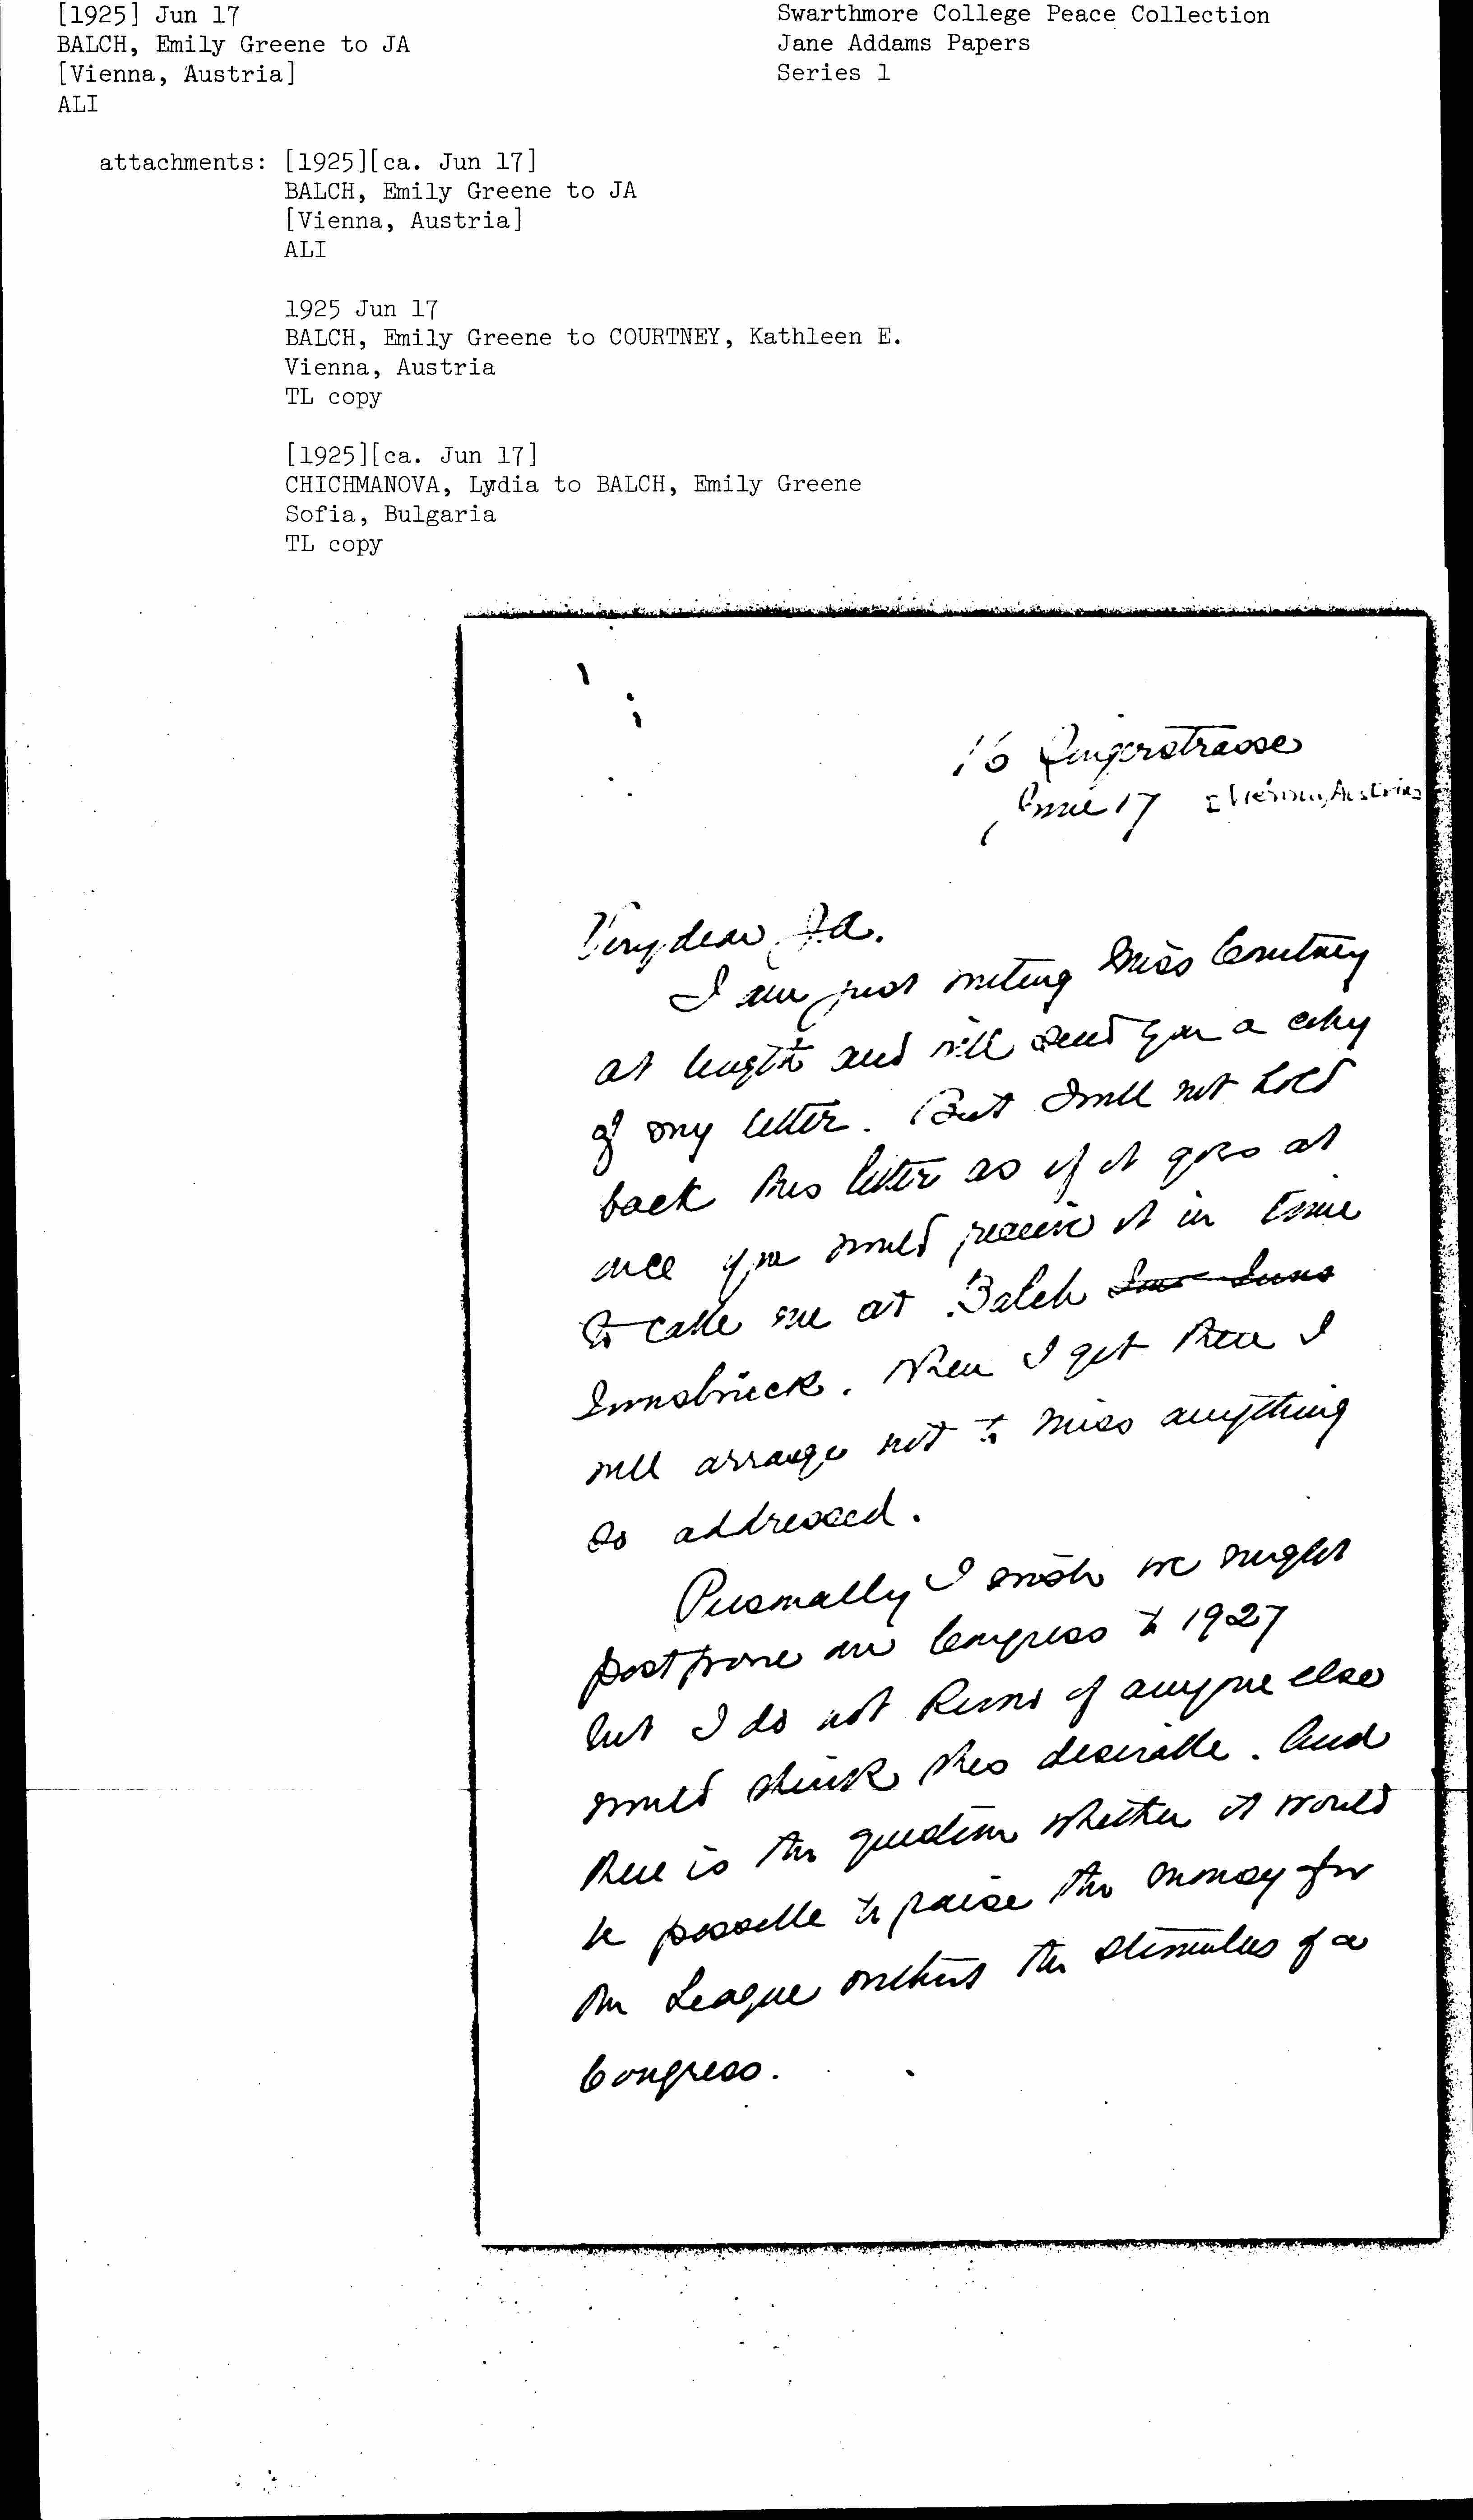 [1925] Jun 17
BALCH, Emily Greene to JA
[Vienna, Austria]
ALI
Swarthmore College Peace Collection
Jane Addams Papers
Series 1
attachments: [1925][ca. Jun 17]
BALCH, Emily Greene to JA
[Vienna, Austria]
ALI
1925 Jun 17
BALCH, Emily Greene to COURTNEY, Kathleen E.
Vienna, Austria
TL copy
[1925][ca. Jun 17]
CHICHMANOVA, Lydia to BALCH, Emily Greene
Sofia, Bulgaria
TL copy
16 Singerstrasse
June 17 [Vienna, Austria]
Very dear J.A.
I am just writing Miss Courtney
at length and will send you a copy
of my letter. But I will not hold
back this letter as if it goes at
once you would receive it in time
to cable me at Balch
Innsbruck. When I get there I
will arrange not to miss anything
so addressed.
Personally I wish we might
postpone our Congress to 1927
but I do not know if anyone else
would think this desirable. And
there is the question whether it would
be possible to raise the money for
the League without the stimulus of a
Congress.